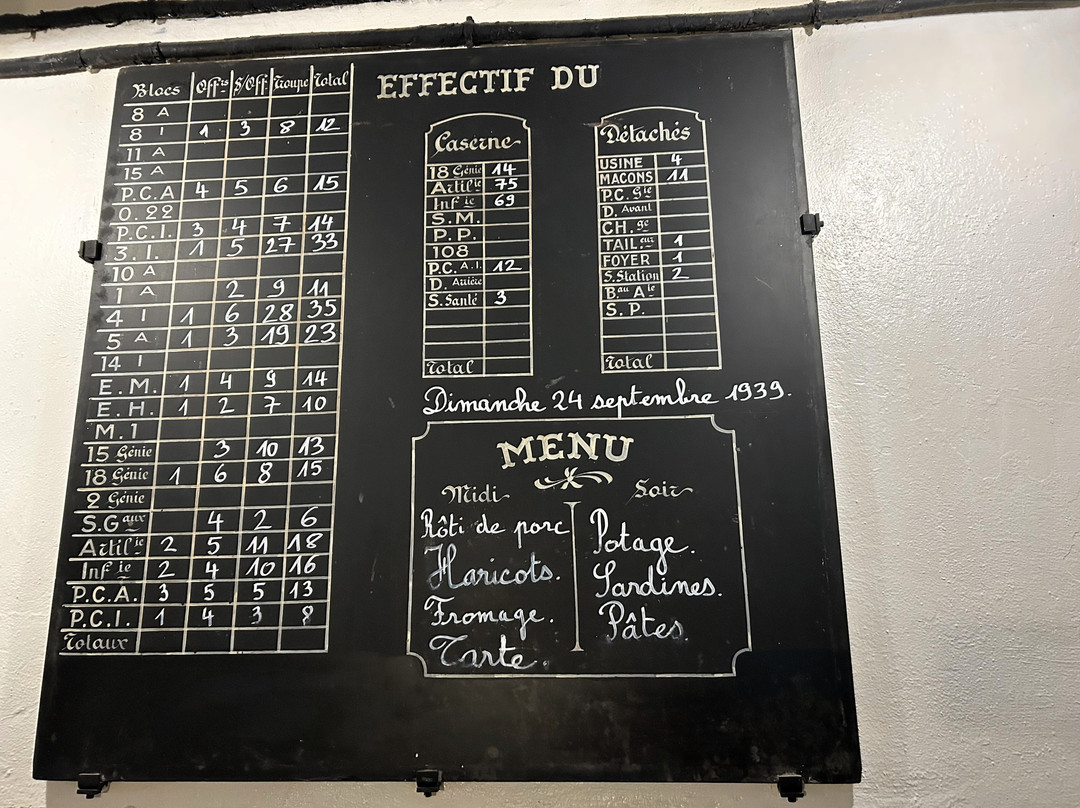 Blocs Offrs S/Off Troupe Total
8 A
8 I 1 3 8 12
11 A
15 A
P.C.A 4 5 6 15
O.22
P.C.I. 3 4 7 14
3. I. 1 5 27 33
10 A
1 A 2 9 11
4 I 1 6 28 35
5 A 1 3 19 23
14 I
E.M. 1 4 9 14
E.H. 1 2 7 10
M.1
15 Génie 3 10 13
18 Génie 1 6 8 15
2 Génie
S.Gaux 4 2 6
Artilie 2 5 11 18
Infie 2 4 10 16
P.C.A. 3 5 5 13
P.C.I. 1 4 3 8
Totaux
EFFECTIF DU
Caserne
18 Génie 14
Artilie 75
Infie 69
S.M.
P.P.
108
P.C.A.I. 12
D. Arrière
S. Santé 3
Total
Détachés
USINE 4
MACONS 11
P.C. Gie
D. Avant
CH. ge
TAIL.eur 1
FOYER 1
S.Station 2
B.au Ale
S.P.
Total
Dimanche 24 septembre 1939.
MENU
Midi
Rôti de porc
Haricots.
Fromage.
Tarte.
Soir
Potage.
Sardines.
Pâtes